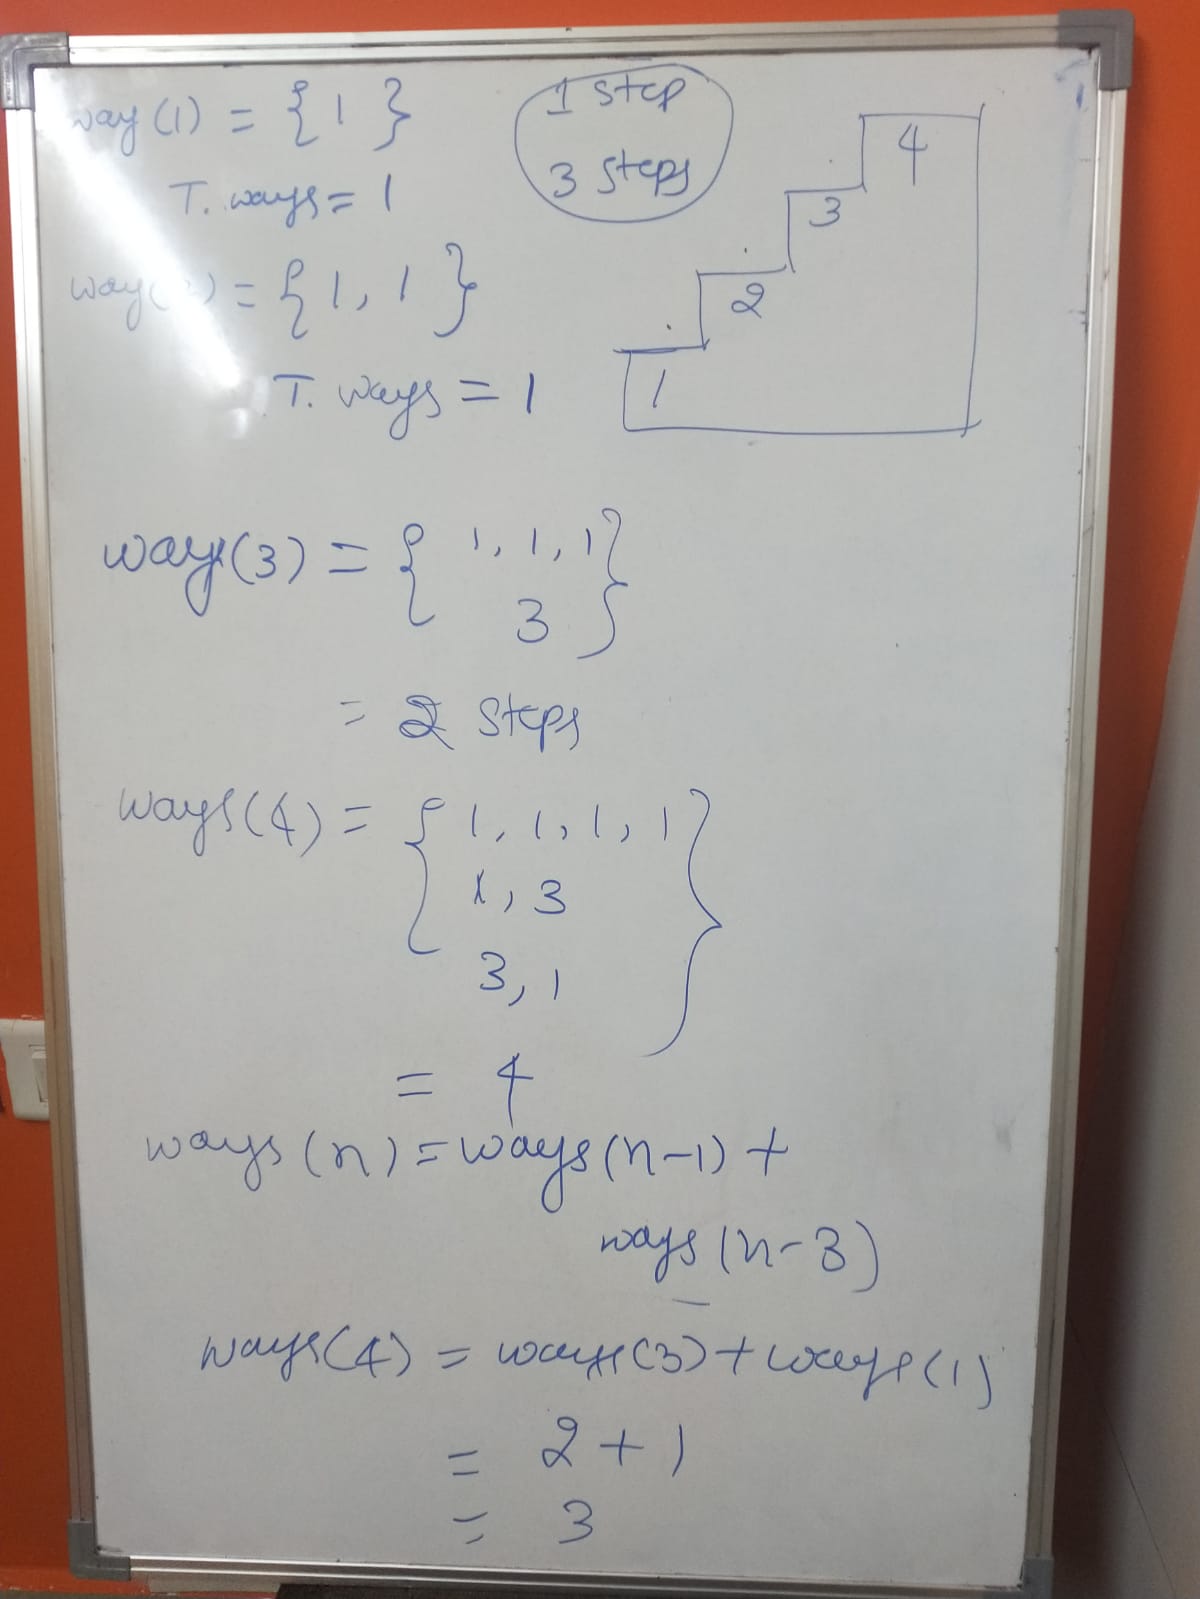 way (1) = { 1 }
T. ways = 1
1 step
3 steps
4
3
2
1
= { 1, 1 }
T. ways = 1
ways(3) = { 1, 1, 1
3 }
= 2 steps
ways(4) = { 1, 1, 1, 1
1, 3
3, 1 }
= 4
ways (n) = ways (n-1) +
ways (n-3)
ways(4) = ways(3) + ways(1)
= 2 + 1
= 3